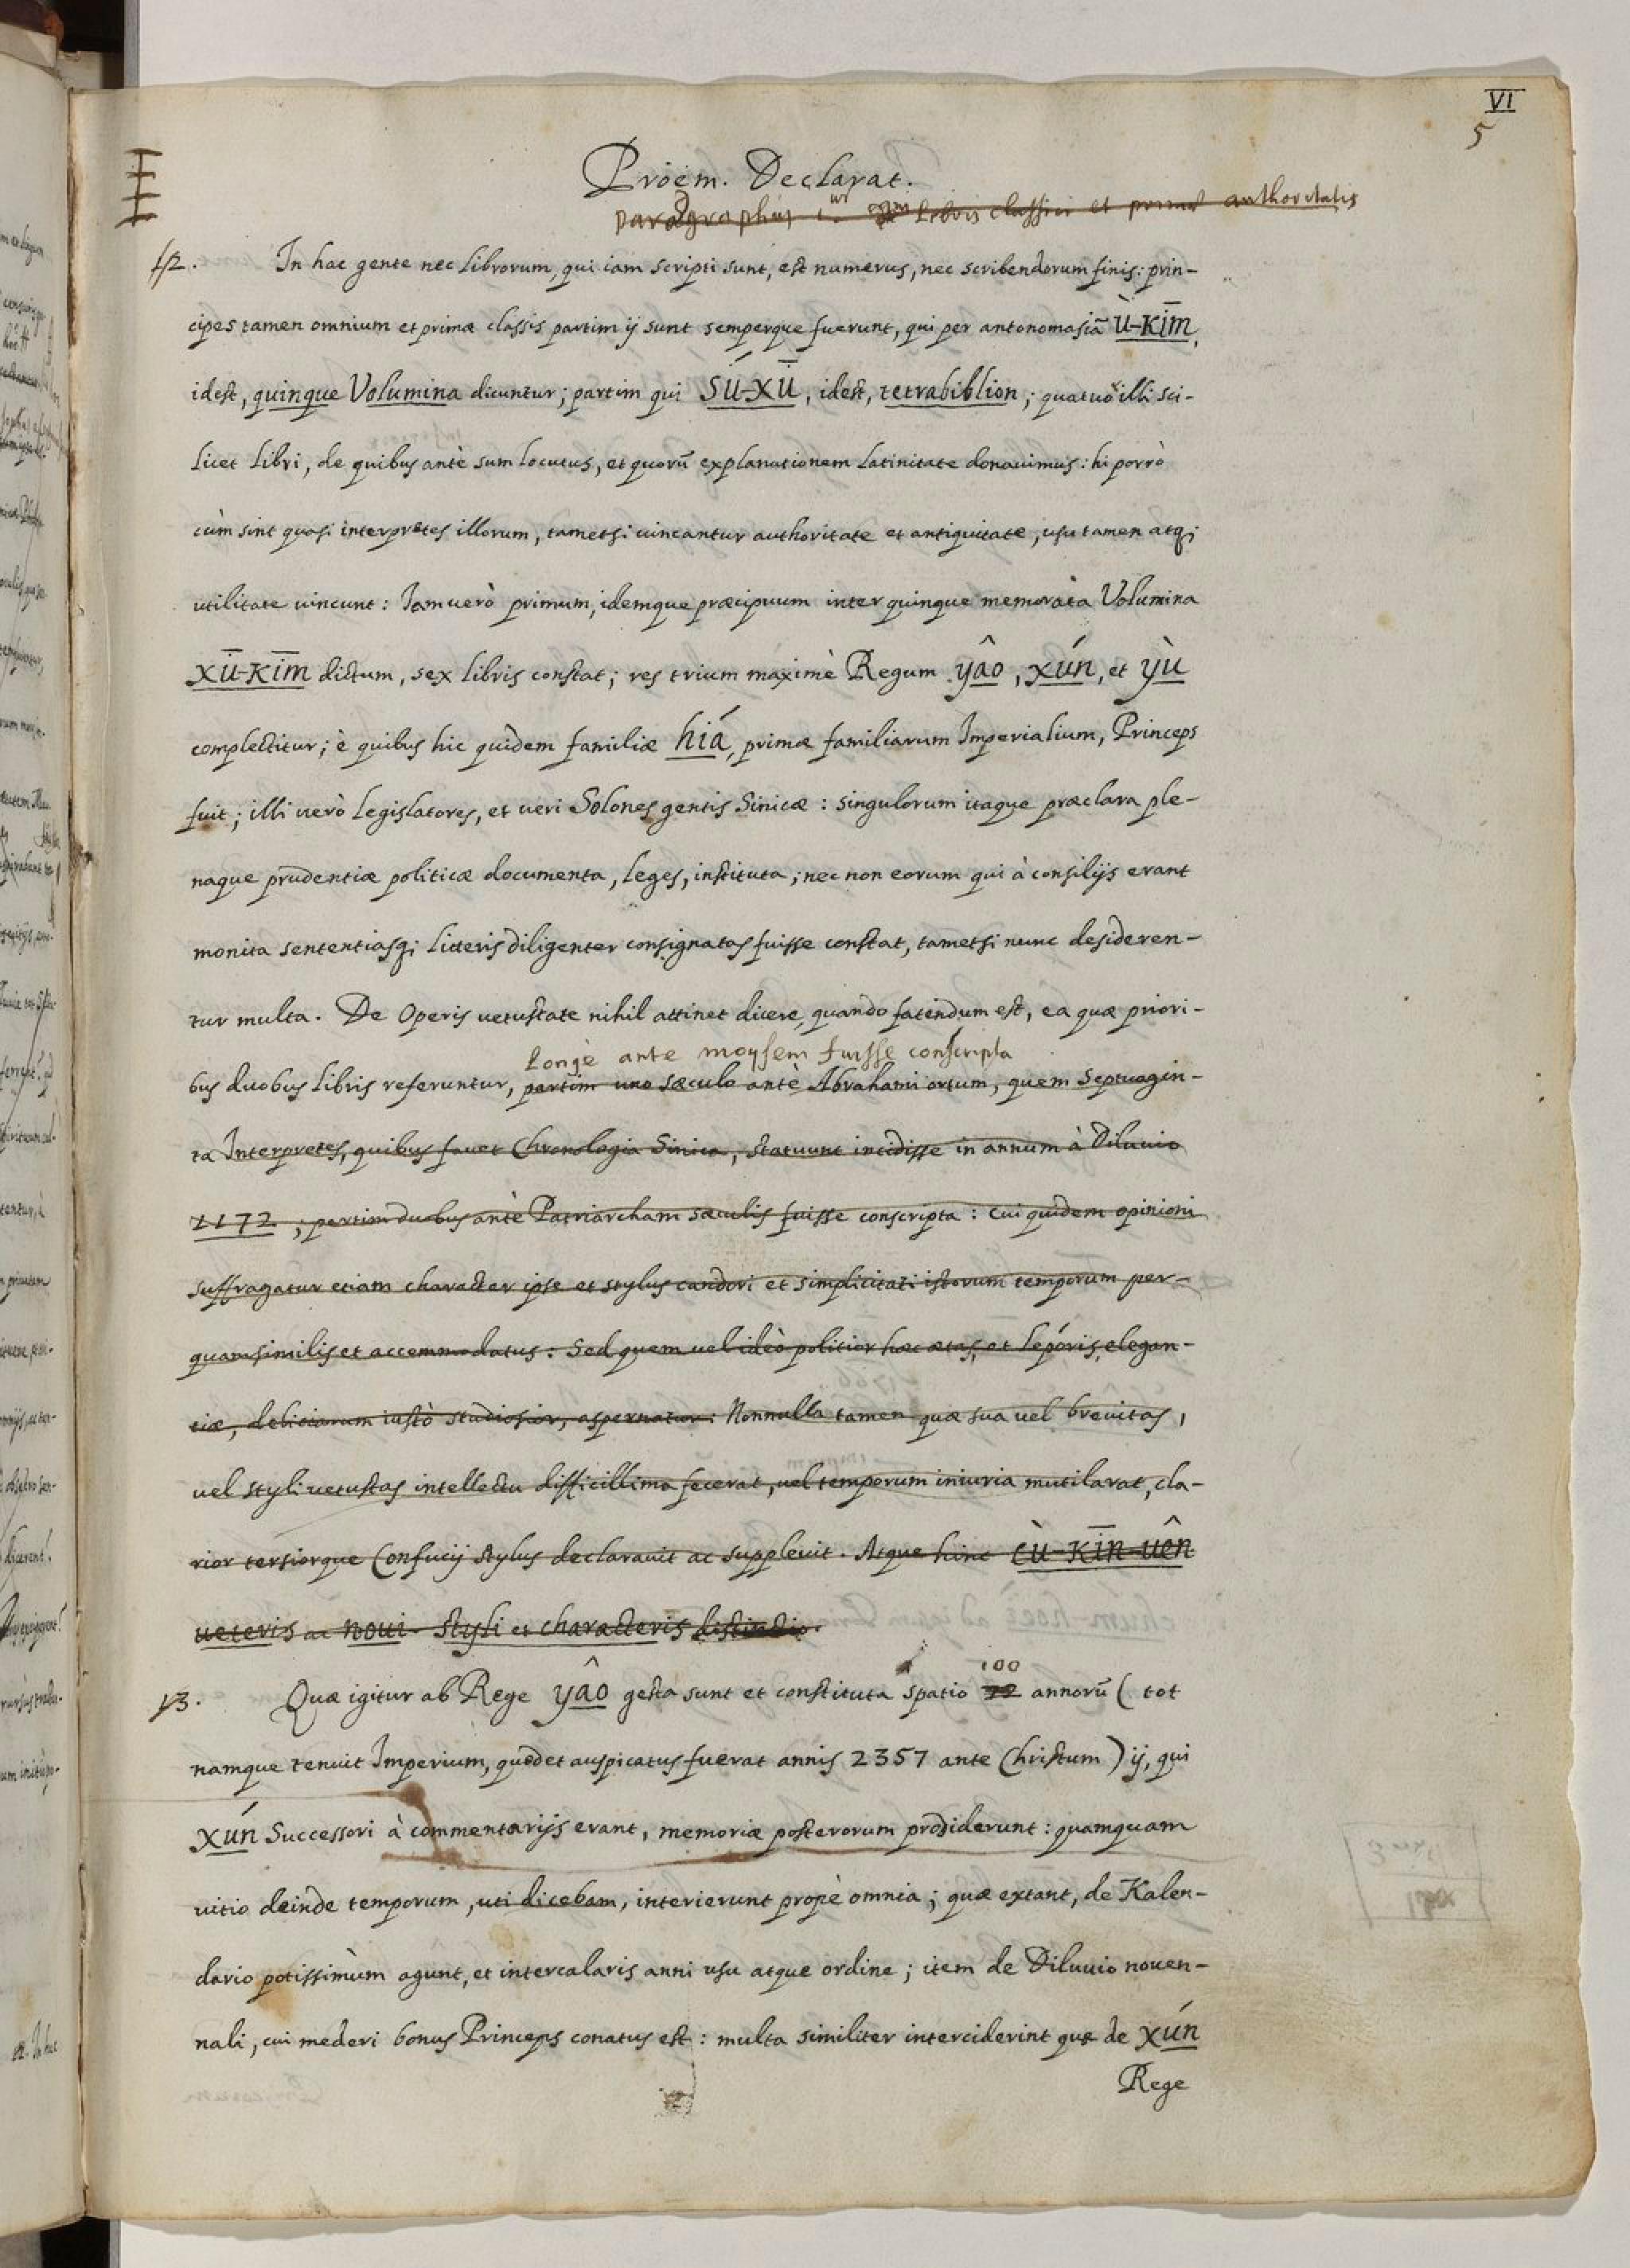 VI
5
Proëm. Declarat.
paragraphus 1.us Libris classicis et primæ authoritatis
12. In hac gente nec Librorum, qui iam scripti sunt, est numerus, nec scribendorum finis: prin-
cipes tamen omnium et primæ classis partim ij sunt semperque fuerunt, qui per antonomasiā Ù-Kīm,
idest, quinque Volumina dicuntur; partim qui SÚ-XŪ, idest, tetrabiblion; quatuor illi sci-
licet Libri, de quibus antè sum locutus, et quorū explanationem Latinitate donauimus: hi porrò
cùm sint quasi interpretes illorum, tametsi uincantur authoritate et antiquitate, usu tamen atq;
utilitate uincunt: Iam uerò primum, idemque præcipuum inter quinque memorata Volumina
XŪ-Kīm dictum, sex libris constat; res trium maximè Regum yâo, xún, et yù
complectitur; è quibus hic quidem familiæ hiá, primæ familiarum Imperialium, Princeps
fuit; illi uerò legislatores, et ueri Solones gentis Sinicæ: singulorum itaque præclara ple-
naque prudentiæ politicæ documenta, leges, instituta; nec non eorum qui à consilijs erant
monita sententiasq; litteris diligenter consignatas fuisse constat, tametsi nunc desideren-
tur multa. De Operis uetustate nihil attinet dicere, quando fatendum est, ea quæ priori-
Longè ante moysem fuisse conscripta
bus duobus libris referuntur, partim uno sæculo antè Abrahami ortum, quem Septuagin-
ta Interpretes, quibus fauet Chronologia Sinica, statuunt incidisse in annum à Diluuio
1172; partim duobus antè Patriarcham sæculis fuisse conscripta: cui quidem opinioni
suffragatur etiam character ipse et stylus candori et simplicitati istorum temporum per-
quam similis et accommodatus: Sed quem uel ideò politior hæc ætas, et lepóris, elegan-
tiæ, deliciarum iustò studiosior, aspernatur: Nonnulla tamen quæ sua uel breuitas,
uel styli uetustas intellectu difficillima fecerat, uel temporum iniuria mutilarat, cla-
rior tersiorque Confucij stylus declarauit ac suppleuit. Atque hinc cù-Kīn-uên
ueteris ac noui styli et characteris distinctio.
13. Quæ igitur ab Rege yâo gesta sunt et constituta spatio 72 100 annorū (tot
namque tenuit Imperium, quod et auspicatus fuerat annis 2357 ante Christum) ij, qui
xún Successori à commentarijs erant, memoriæ posterorum prodiderunt: quamquam
uitio deinde temporum, uti dicebam, interierunt propè omnia; quæ extant, de Kalen-
dario potissimùm agunt, et intercalaris anni usu atque ordine; item de Diluuio nouen-
nali, cui mederi bonus Princeps conatus est: multa similiter interciderint quæ de xún
Rege